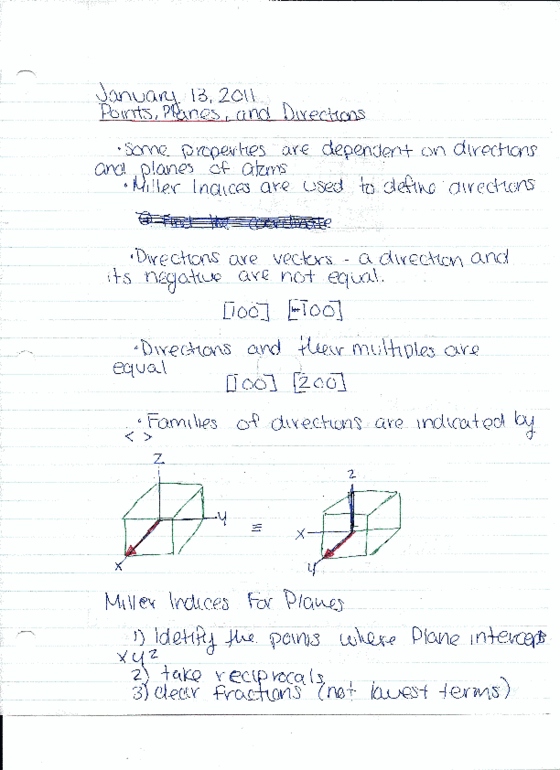 January 13, 2011
Points, Planes, and Directions
• Some properties are dependent on directions
and planes of atoms
• Miller Indices are used to define directions
• Directions are vectors - a direction and
its negative are not equal.
[100] [1̄00]
• Directions and their multiples are
equal
[100] [200]
• Families of directions are indicated by
< >
Z
Y
X
≡
Z
X
Y
Miller Indices For Planes
1) Identify the points where Plane intercepts
x y z
2) take reciprocals
3) clear fractions (not lowest terms)